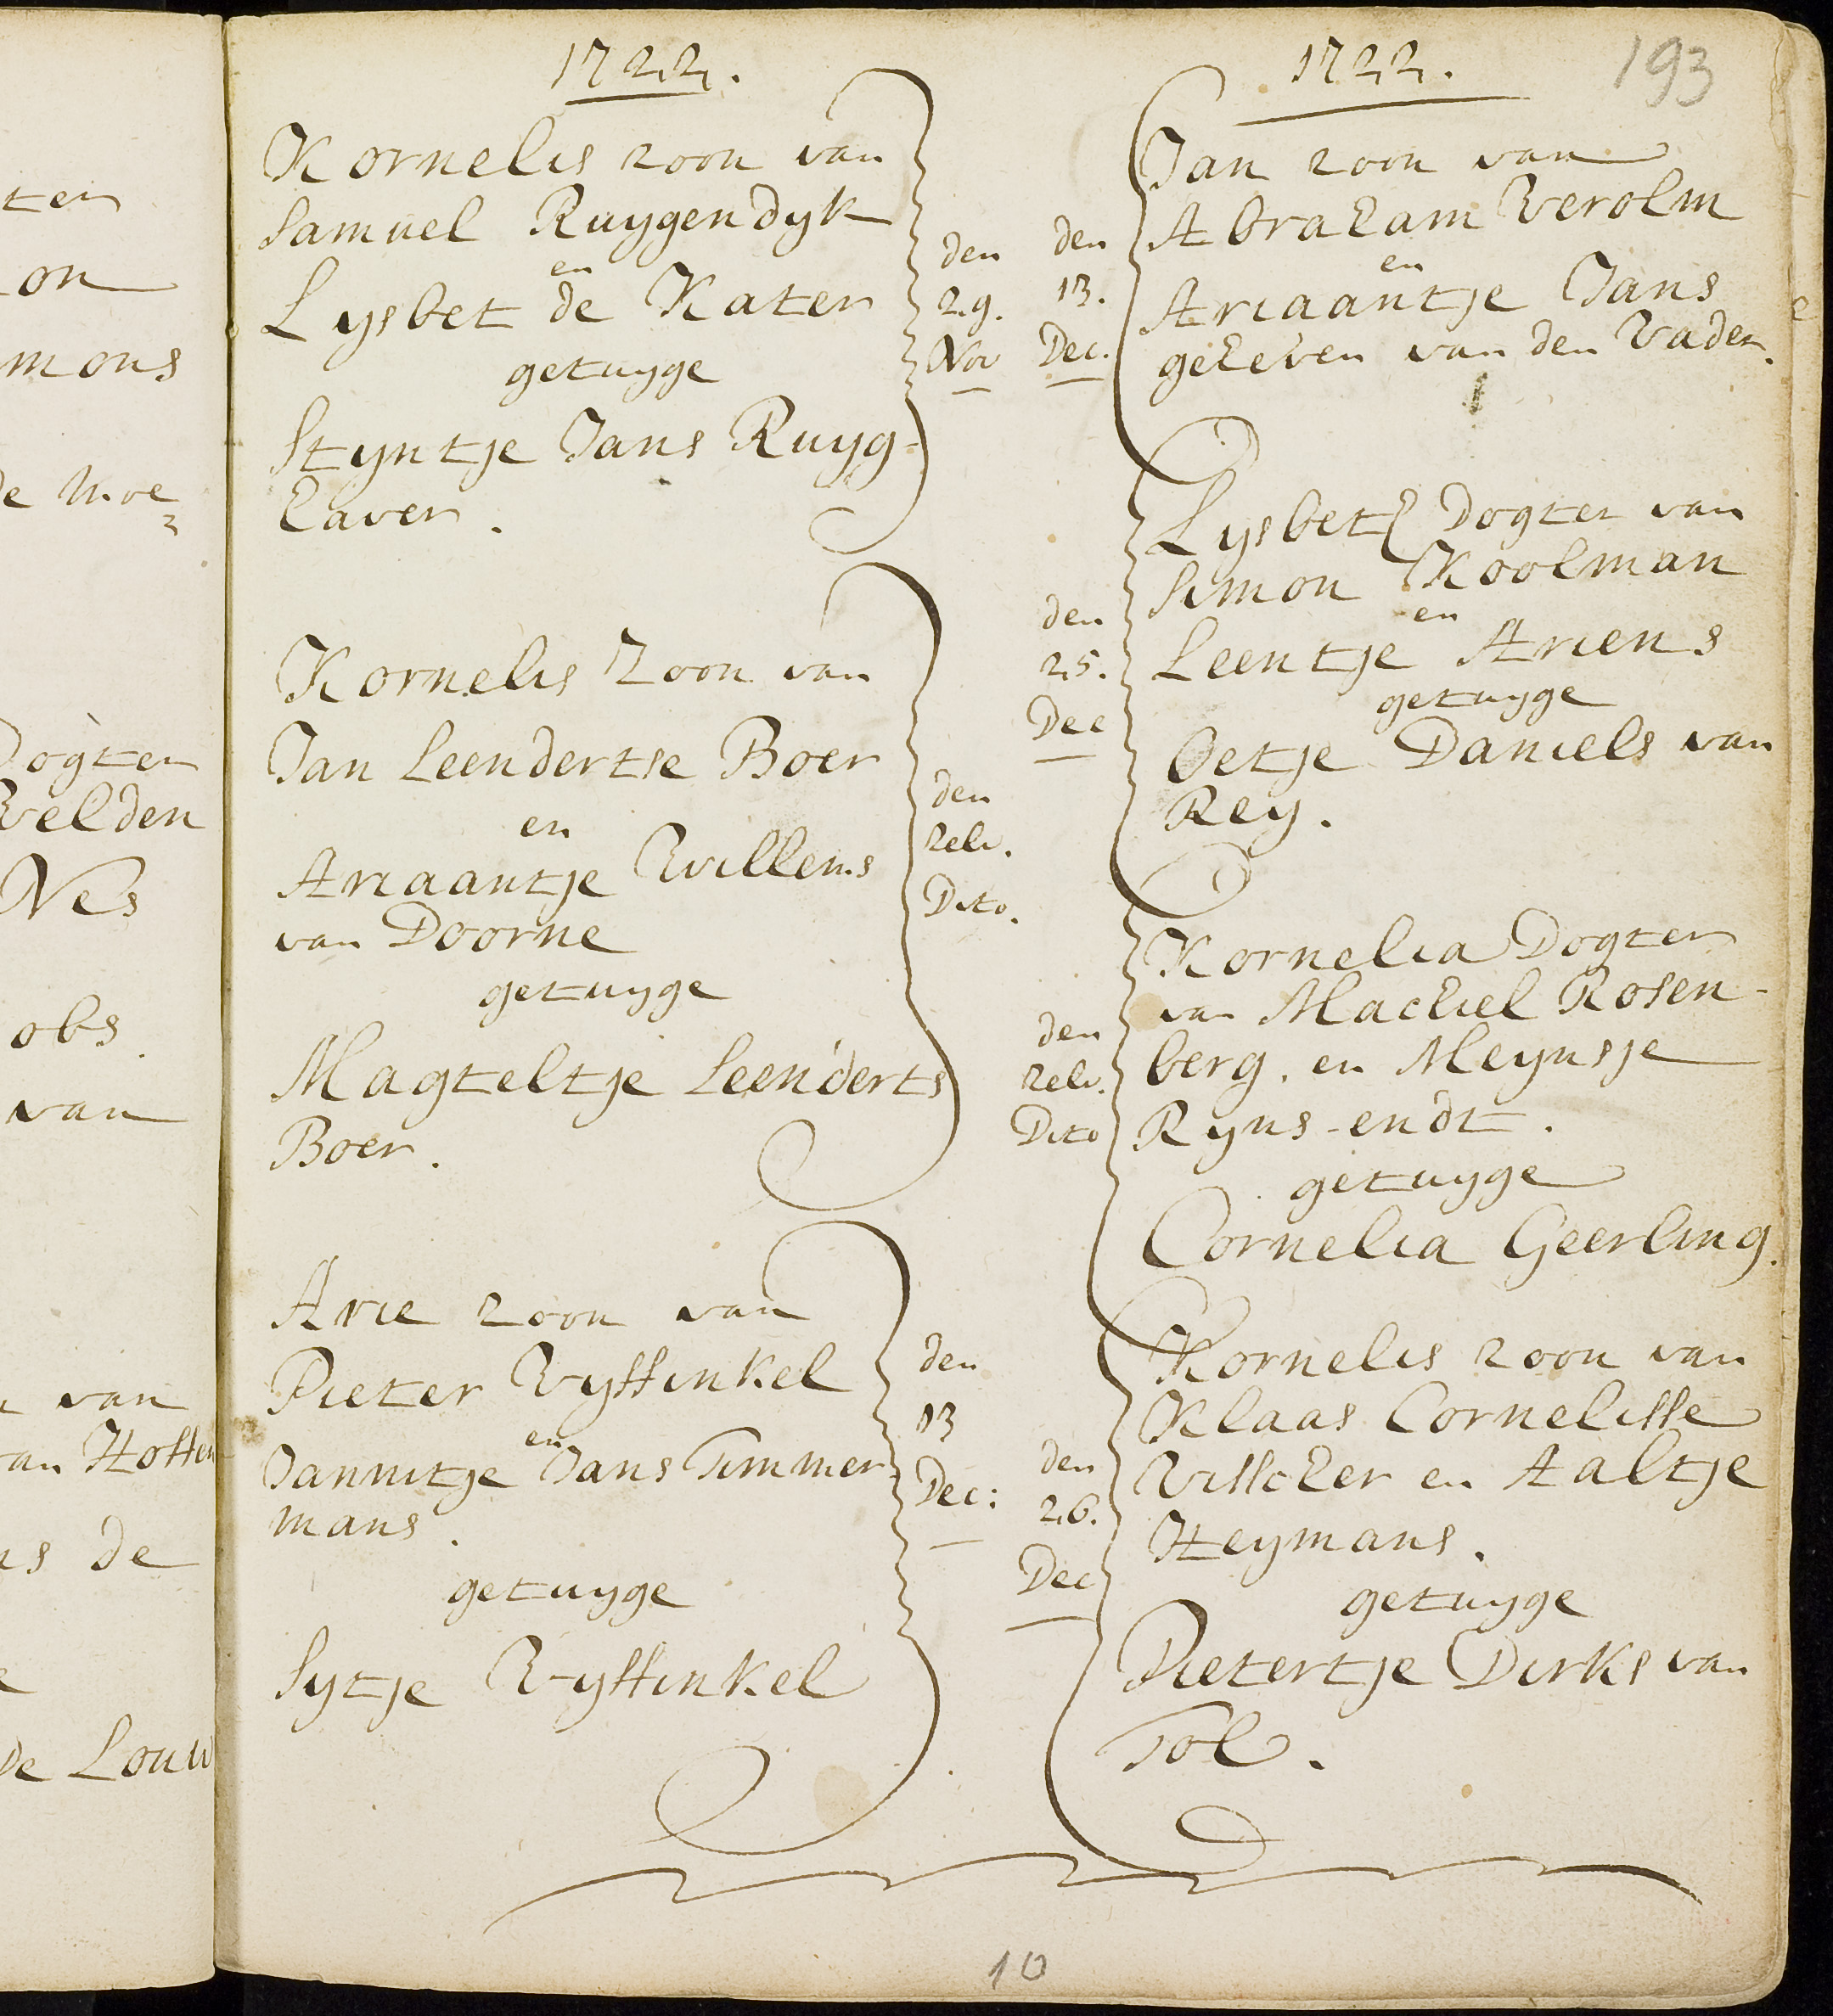 ter
on
mons
de Moe
Dogter
velden
Nes
obs
van
van
an Hoffen
ns de
de Louw
1722.
Kornelis zoon van
Samuel Ruygendyk
en
Lysbet de Kater
getuyge
Styntje Jans Ruyg-
haver.
den
29.
Nov
Kornelis Zoon van
Jan Leendertse Boer
en
Ariaantje Willems
van Doorne
getuyge
Magteltje Leenderts
Boer.
den
zelv.
Dito.
Arie zoon van
Pieter Vyffinkel
en
Jannitje Jans Timmer-
mans.
getuyge
Sytje Vyffinkel
den
13
Dec:
1722.
193
den
13.
Dec.
Jan zoon van
Abraham Verolm
en
Ariaantje Jans
geheven van den Vader.
den
25.
Dec
Lysbeth Dogter van
Simon Koolman
en
Leentje Ariens
getuyge
Oetje Daniels van
Rey.
den
zelv.
Dito
Kornelia Dogter
van Machiel Rosen-
berg, en Meynsje
Ryns-endt.
getuyge
Cornelia Geerling.
den
26.
Dec
Kornelis zoon van
Klaas Cornelisse
Visscher en Aaltje
Heymans.
getuyge
Pietertje Dirks van
Tol.
10